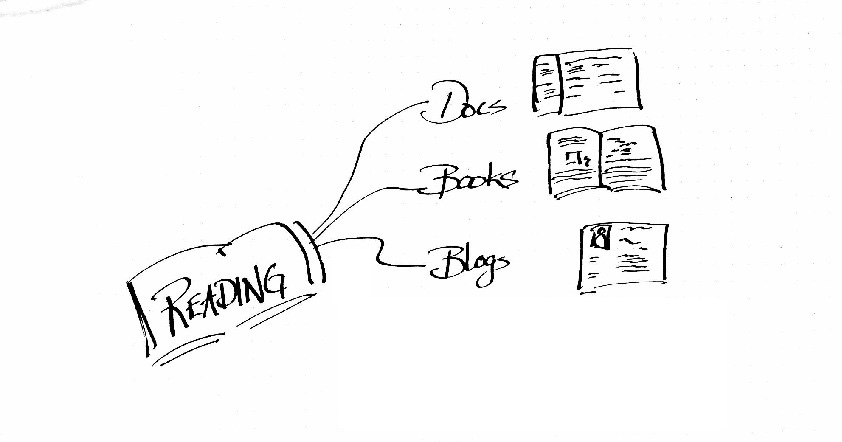 READING
Docs
Books
Blogs